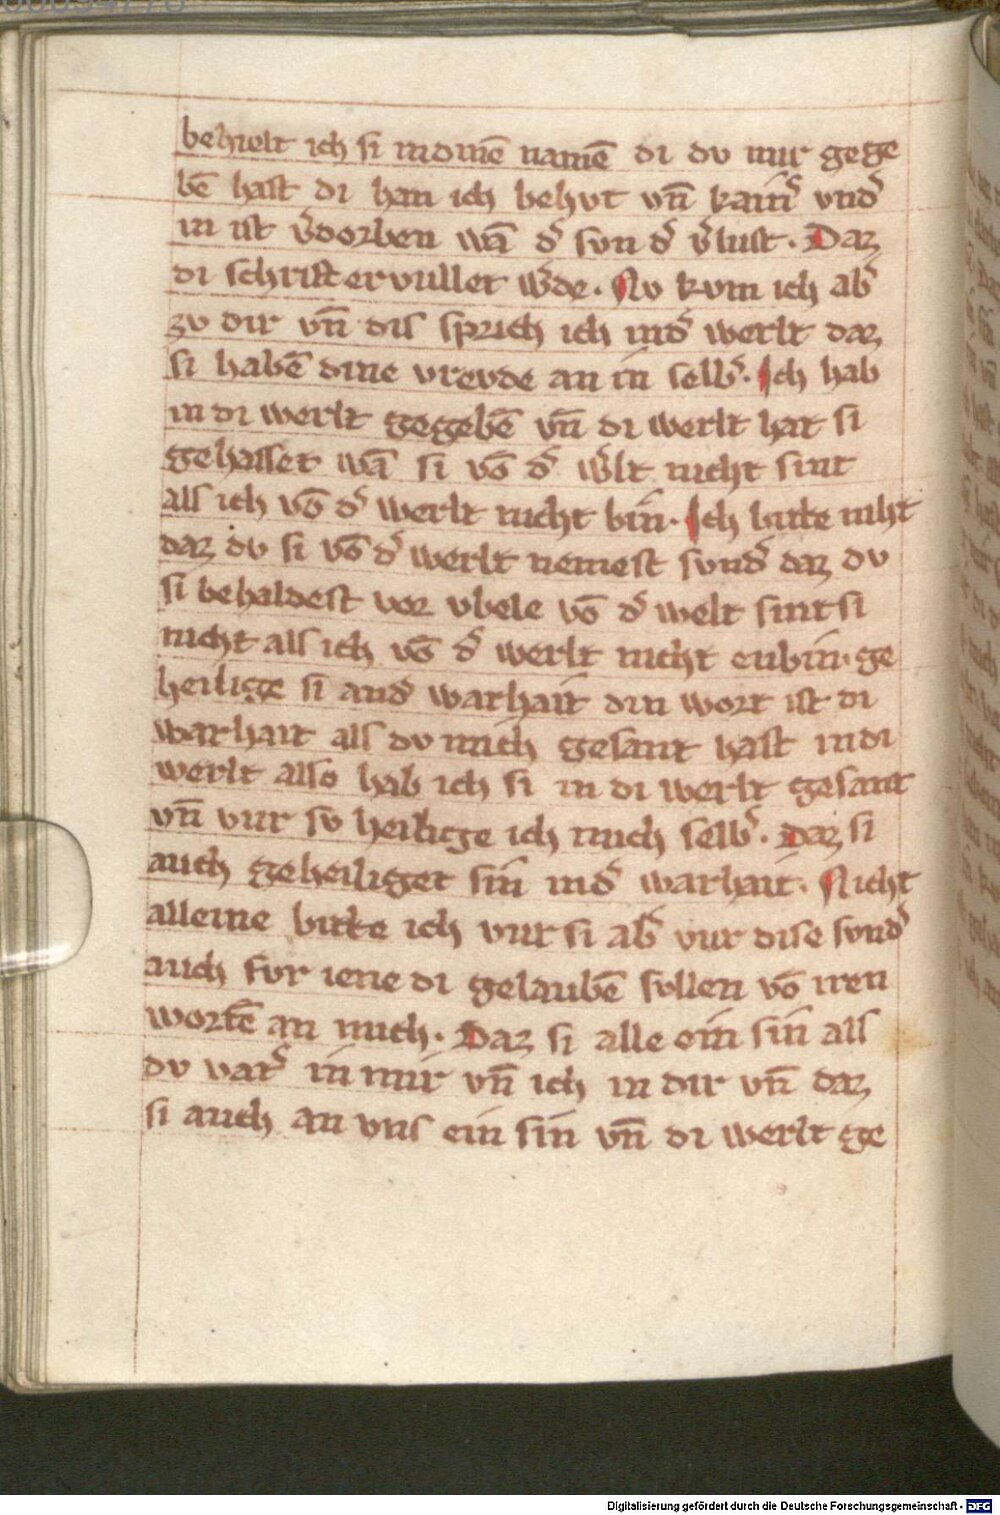 behielt ich si indinē namē di du mir gege
bē hast di han ich behut vn̄ kain᷑ vnd᷑
in ist v᷑dorben wā d᷑ sun d᷑ v᷑lust. Daz
di schrift ervullet w᷑de. Nv kvm ich ab᷑
zv dir vn̄ dis sprich ich ind᷑ werlt daz
si habē dine vrevde an in selb᷑. Ich hab
in di werlt gegebē vn̄ di werlt hat si
gehasset wā si vō d᷑ w᷑lt nicht sint
als ich vō d᷑ werlt nicht bin. Ich bitte niht
daz dv si vō d᷑ werlt nemest svnd᷑ daz dv
si behaldest vor vbele vō d᷑ welt sint si
nicht als ich vō d᷑ werlt nicht enbin. ge
heilige si and᷑ warhait din wort ist di
warhait als dv mich gesant hast indi
werlt also hab ich si in di werlt gesant
vn̄ vur sv heilige ich mich selb᷑. Daz si
auch geheiliget sin ind᷑ warhait. Nicht
alleine bitte ich vur si ab᷑ vur dise svnd᷑
auch fvr iene di gelaubē svllen vō iren
wortē an mich. Daz si alle ein sin als
dv vat᷑ in mir vn̄ ich in dir vn̄ daz
si auch an vns ein sin vn̄ di werlt ge
Digitalisierung gefördert durch die Deutsche Forschungsgemeinschaft - DFG